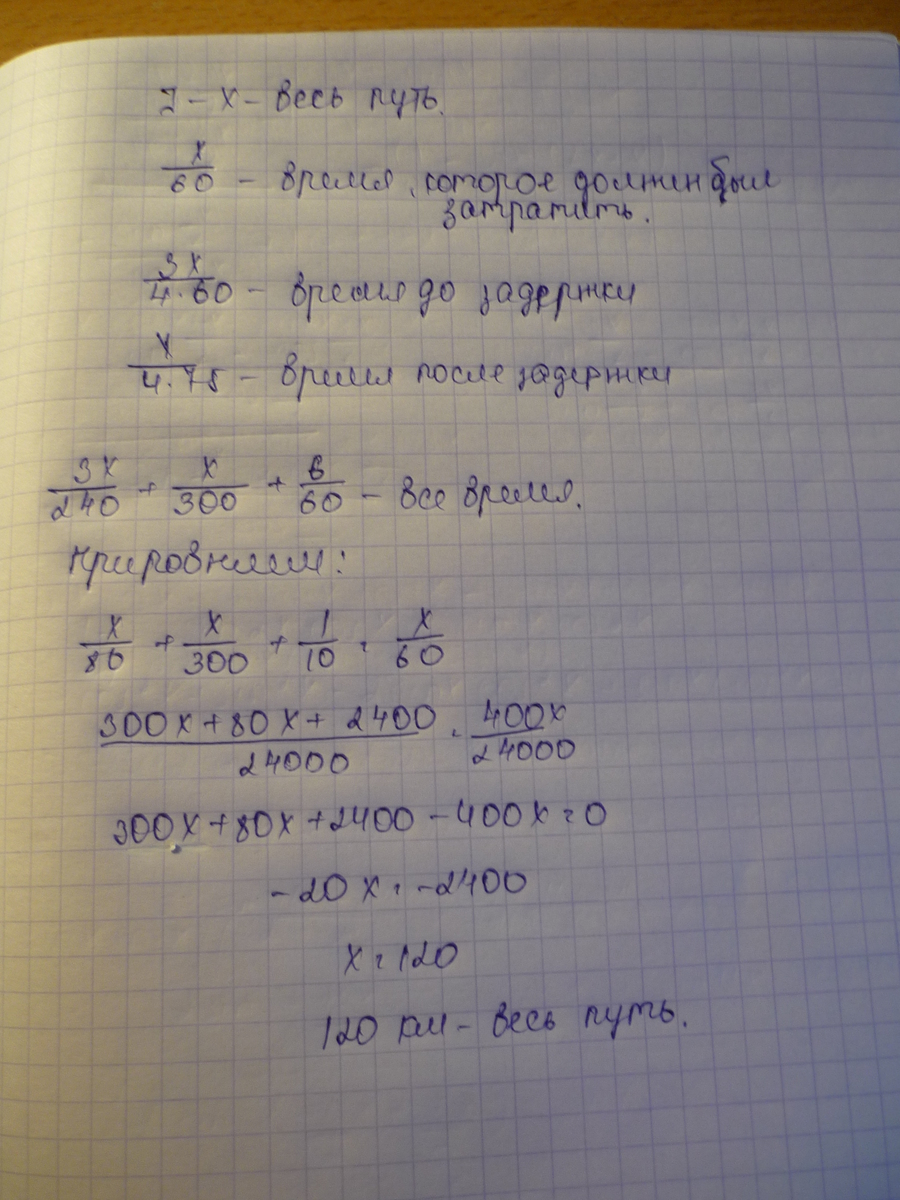 J - x - весь путь.
x/60 - время, которое должен был
затратить.
3x/4·60 - время до задержки
x/4·75 - время после задержки
3x/240 + x/300 + 6/60 - все время.
прировняем:
x/80 + x/300 + 1/10 = x/60
300x+80x+2400/24000 = 400x/24000
300x+80x+2400-400x=0
-20x=-2400
x=120
120 км - весь путь.